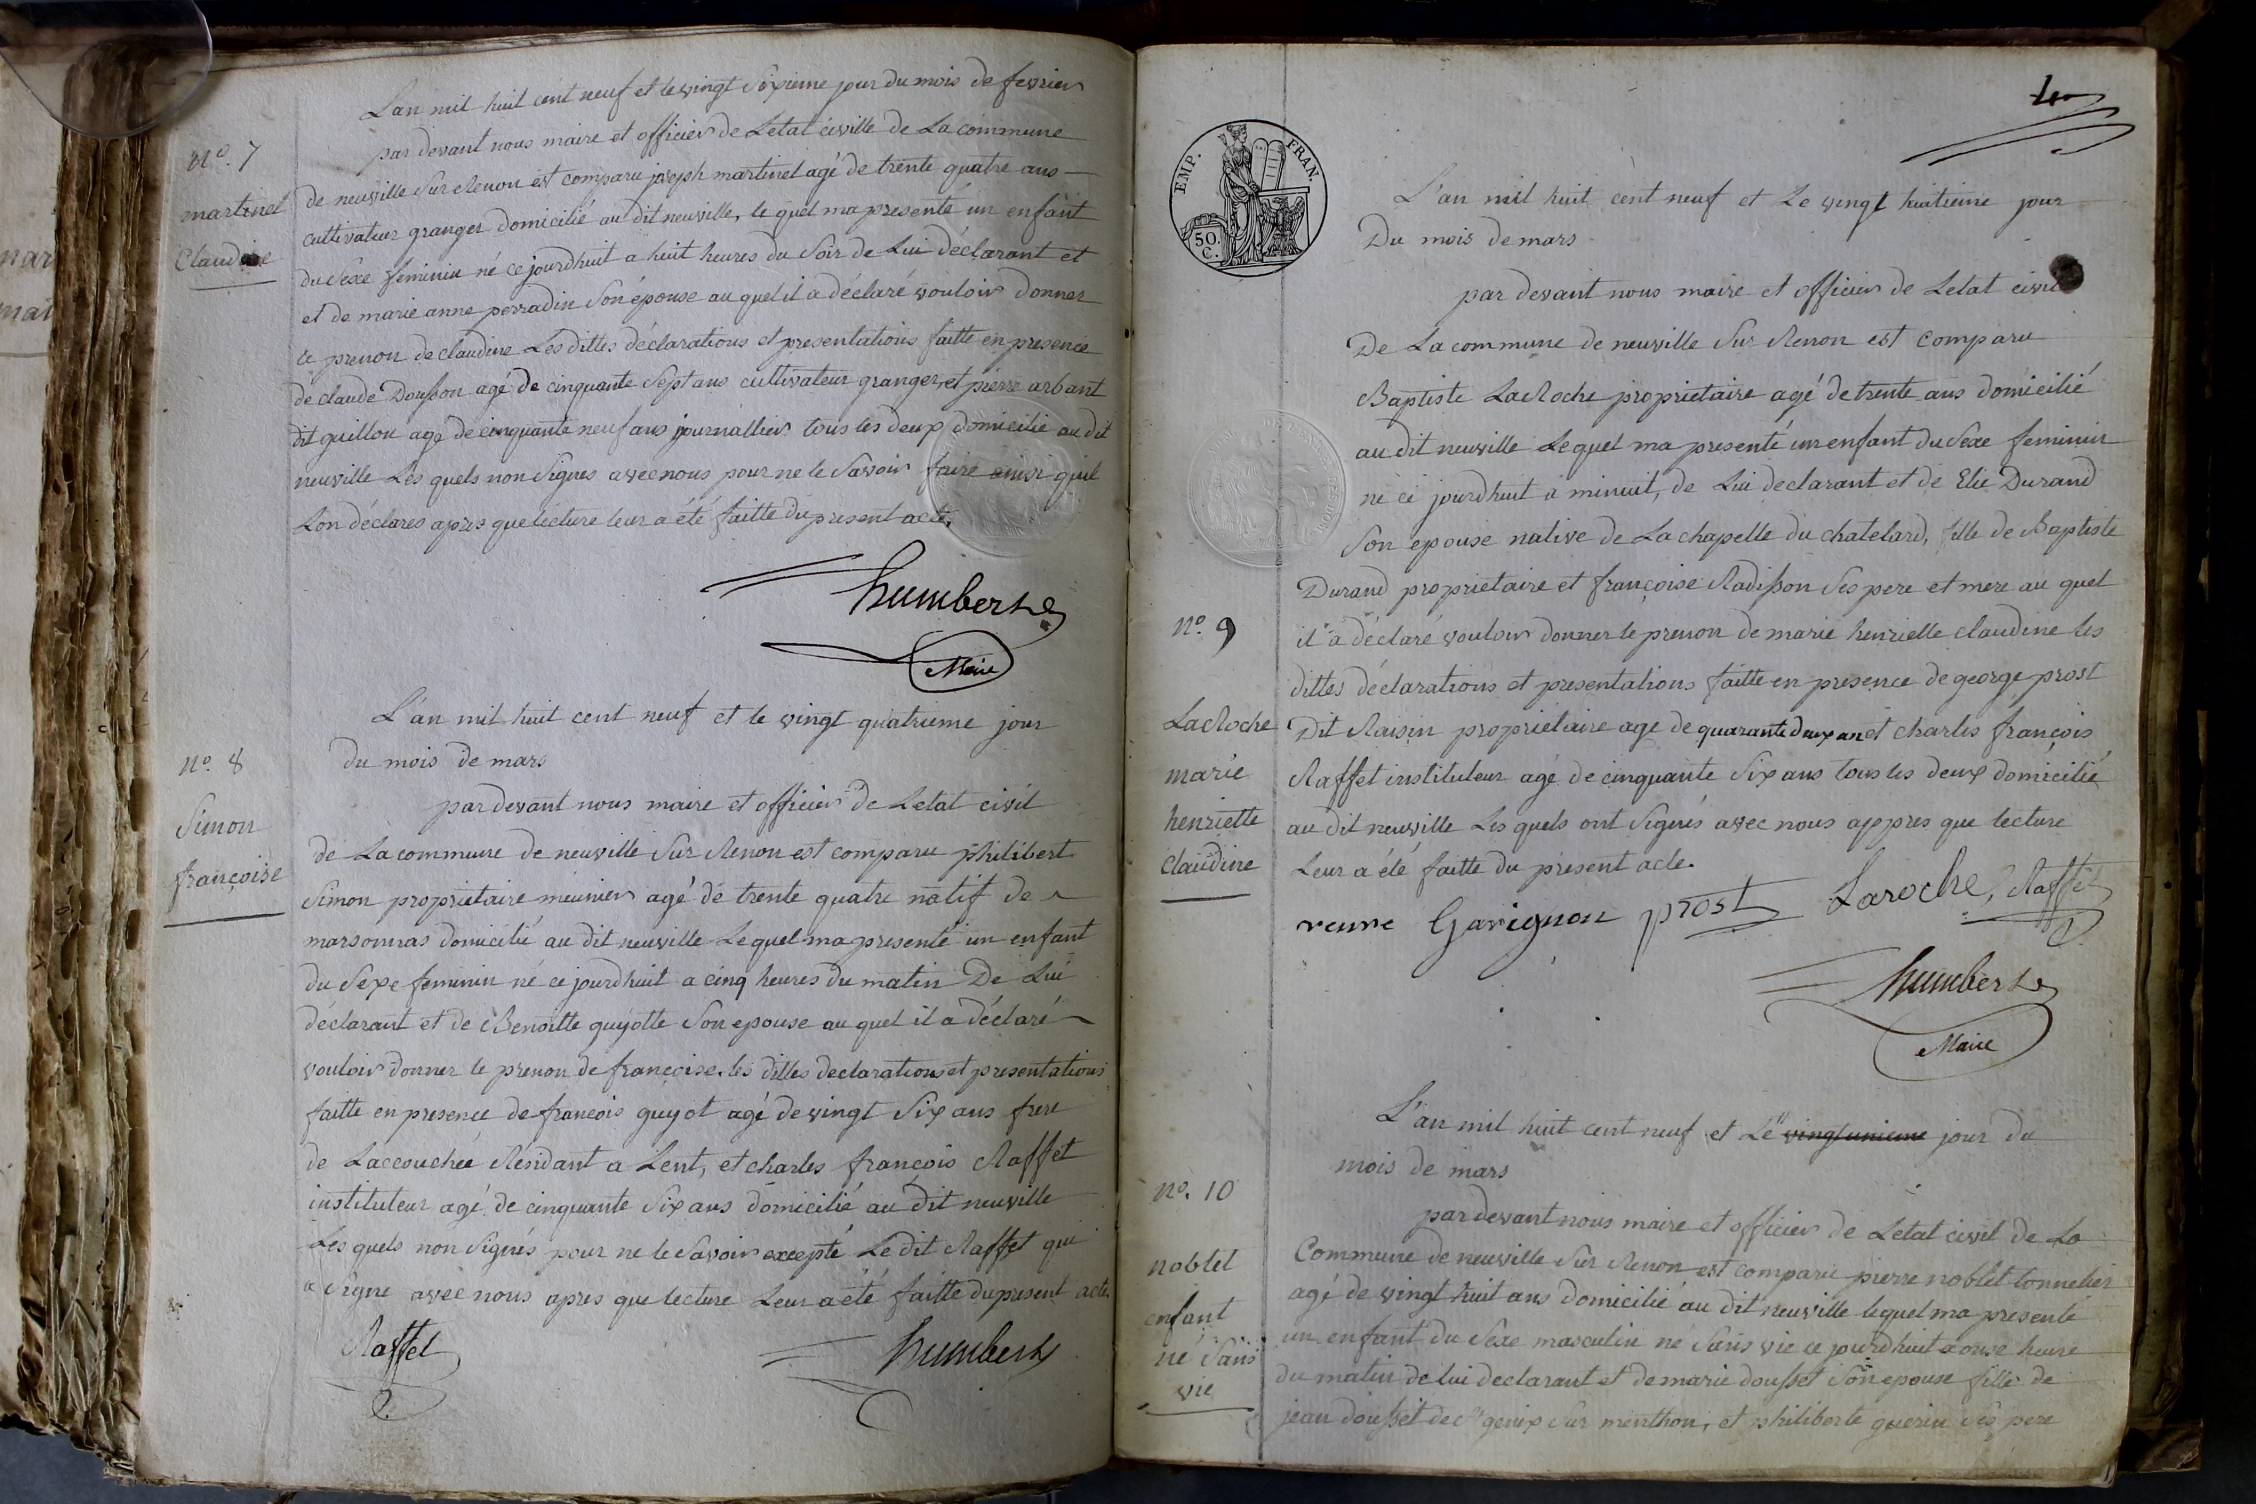 Lan mil huit cent neuf et le vingt Sixieme jour du mois de fevrier
par devant nous maire et officier de Letat civille de La commune
N.o 7
martinel
Claudine
de neuville Sur Renon est comparu joseph martinel agé de trente quatre ans
cultivateur granger domicilié au dit neuville, le quel ma presenté un enfant
du Sexe feminin né ce jourdhuit a huit heures du Soir de Lui déclarant et
et de marie anne perradin Son épouse au quel il a déclaré vouloir donner
le prenon de claudine Les dittes déclarations et presentations faitte en presence
de claude Dousson agé de cinquante Sept ans cultivateur granger, et pierre arbant
dit guillon agé de cinquante neuf ans journallier tous les deux domicilié au dit
neuville Les quels non Signes avec nous pour ne le Savoir faire ainsi quil
Lon déclares apres que lecture leur a été faitte du present acte,
humbert
Maire
L'an mil huit cent neuf et le vingt quatrieme jour
du mois de mars
N.o 8
Simon
françoise
par devant nous maire et officier de Letat civil
de La commune de neuville Sur Renon est comparu philibert
Simon proprietaire meunier agé de trente quatre natif de
marsonnas domicilié au dit neuville Le quel ma presenté un enfant
du Sexe feminin né ce jourdhuit a cinq heures du matin De Lui
déclarant et de Benoitte guyotte Son epouse au quel il a déclaré
vouloir donner le prenon de françoise. les dittes declarations et presentations
faitte en presence de françois guyot agé de vingt Six ans frere
de Laccouchée Résidant a Lent, et charles françois Raffet
instituteur agé de cinquante Six ans domicilié au dit neuville
Les quels non Signés pour ne le Savoir excepté Le dit Raffet qui
a Signe avec nous apres que lecture Leur a été faitte du present acte.
Raffet
humbert
4
EMP. FRAN.
50. C.
L'an mil huit cent neuf et Le vingt huitieme jour
Du mois de mars
par devant nous maire et officier de Letat civil
De La commune de neuville Sur Renon est comparu
Baptiste LaRoche proprietaire agé de trente ans domicilié
au dit neuville Lequel ma presenté un enfant du Sexe feminin
né ce jourdhuit a minuit, de Lui declarant et de Elie Durand
Son epouse native de La chapelle du chatelard, fille de Baptiste
Durand proprietaire et françoise Radisson Ses pere et mere au quel
N.o 9
LaRoche
marie
henriette
claudine
il a déclaré vouloir donner le prenon de marie henriette claudine les
dittes déclarations et presentations faitte en presence de george prost
Dit Raisin propriétaire age de quarante deux an et charles françois
Raffet instituteur agé de cinquante Six ans tous les deux domicilié
au dit neuville Les quels ont Signés avec nous appres que lecture
Leur a été faitte du present acte.
veuve Gavignon prost Laroche, Raffet
humbert
Maire
L'an mil huit cent neuf et Le vingtunieme jour du
mois de mars
N.o 10
noblet
enfant
né Sans
vie
par devant nous maire et officier de Letat civil de La
Commune de neuville Sur Renon est comparu pierre noblet tonnelier
agé de vingt huit ans domicilié au dit neuville lequel ma presenté
un enfant du Sexe masculin né Sans vie ce jourdhuit a onse heure
du matin de lui declarant et de marie dousset Son epouse fille de
jean dousset de St genix Sur menthon, et philiberte guerin Ses pere